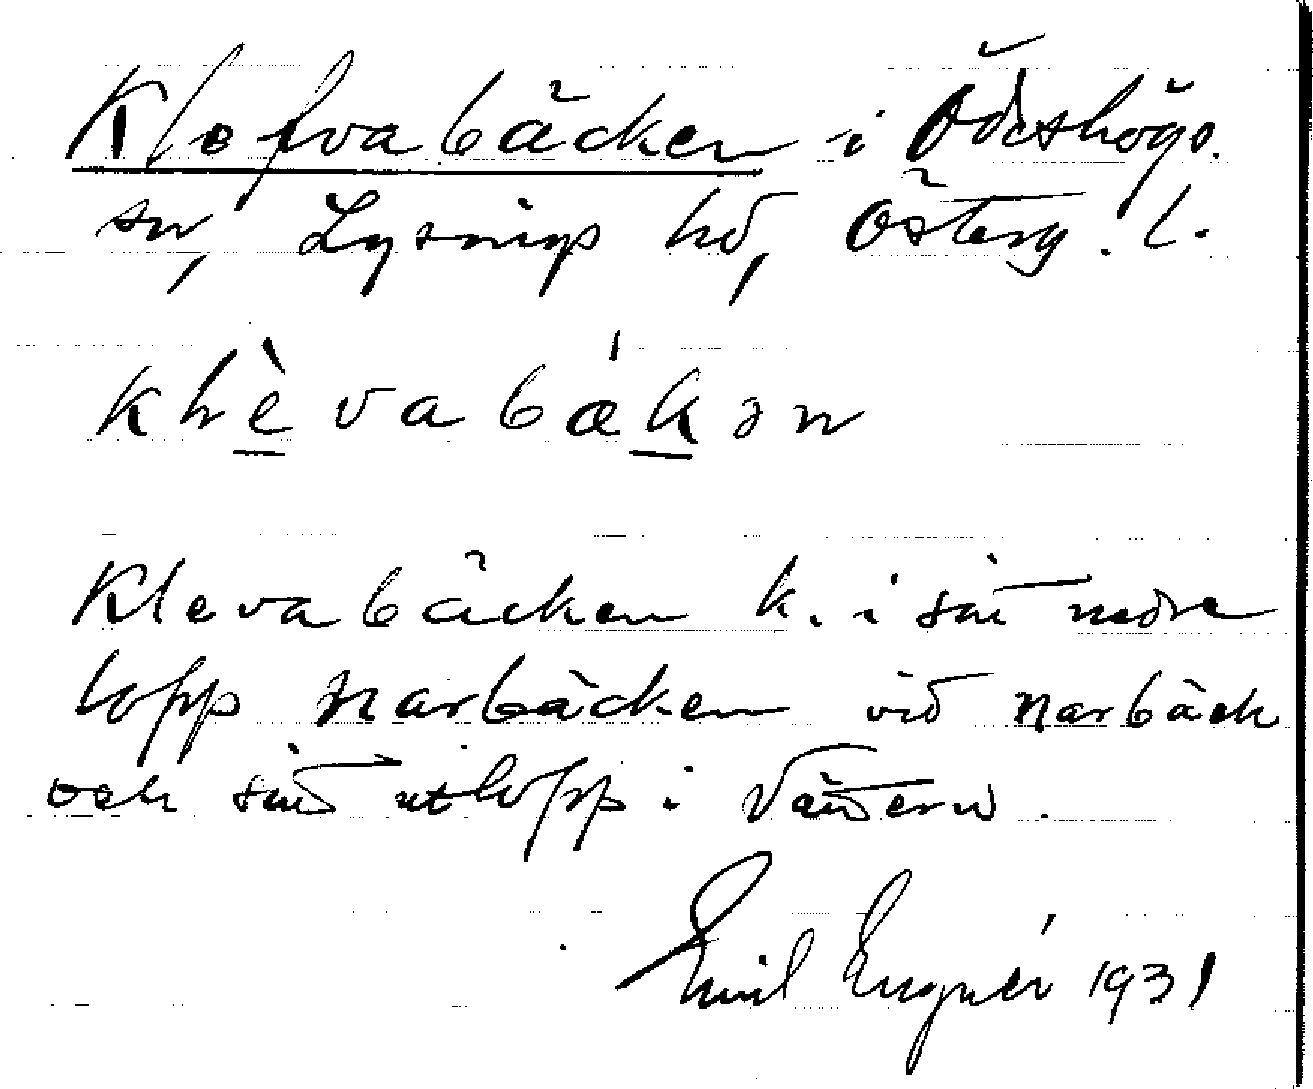 Klefvabäcken i Ödeshögs
sn, Lysings hd, Österg. l.
klèvabǽkən
Klevabäcken k. i sitt nedre
lopp Narbäcken vid Narbäck
och sitt utlopp i Vättern.
Emil Engnér 1931